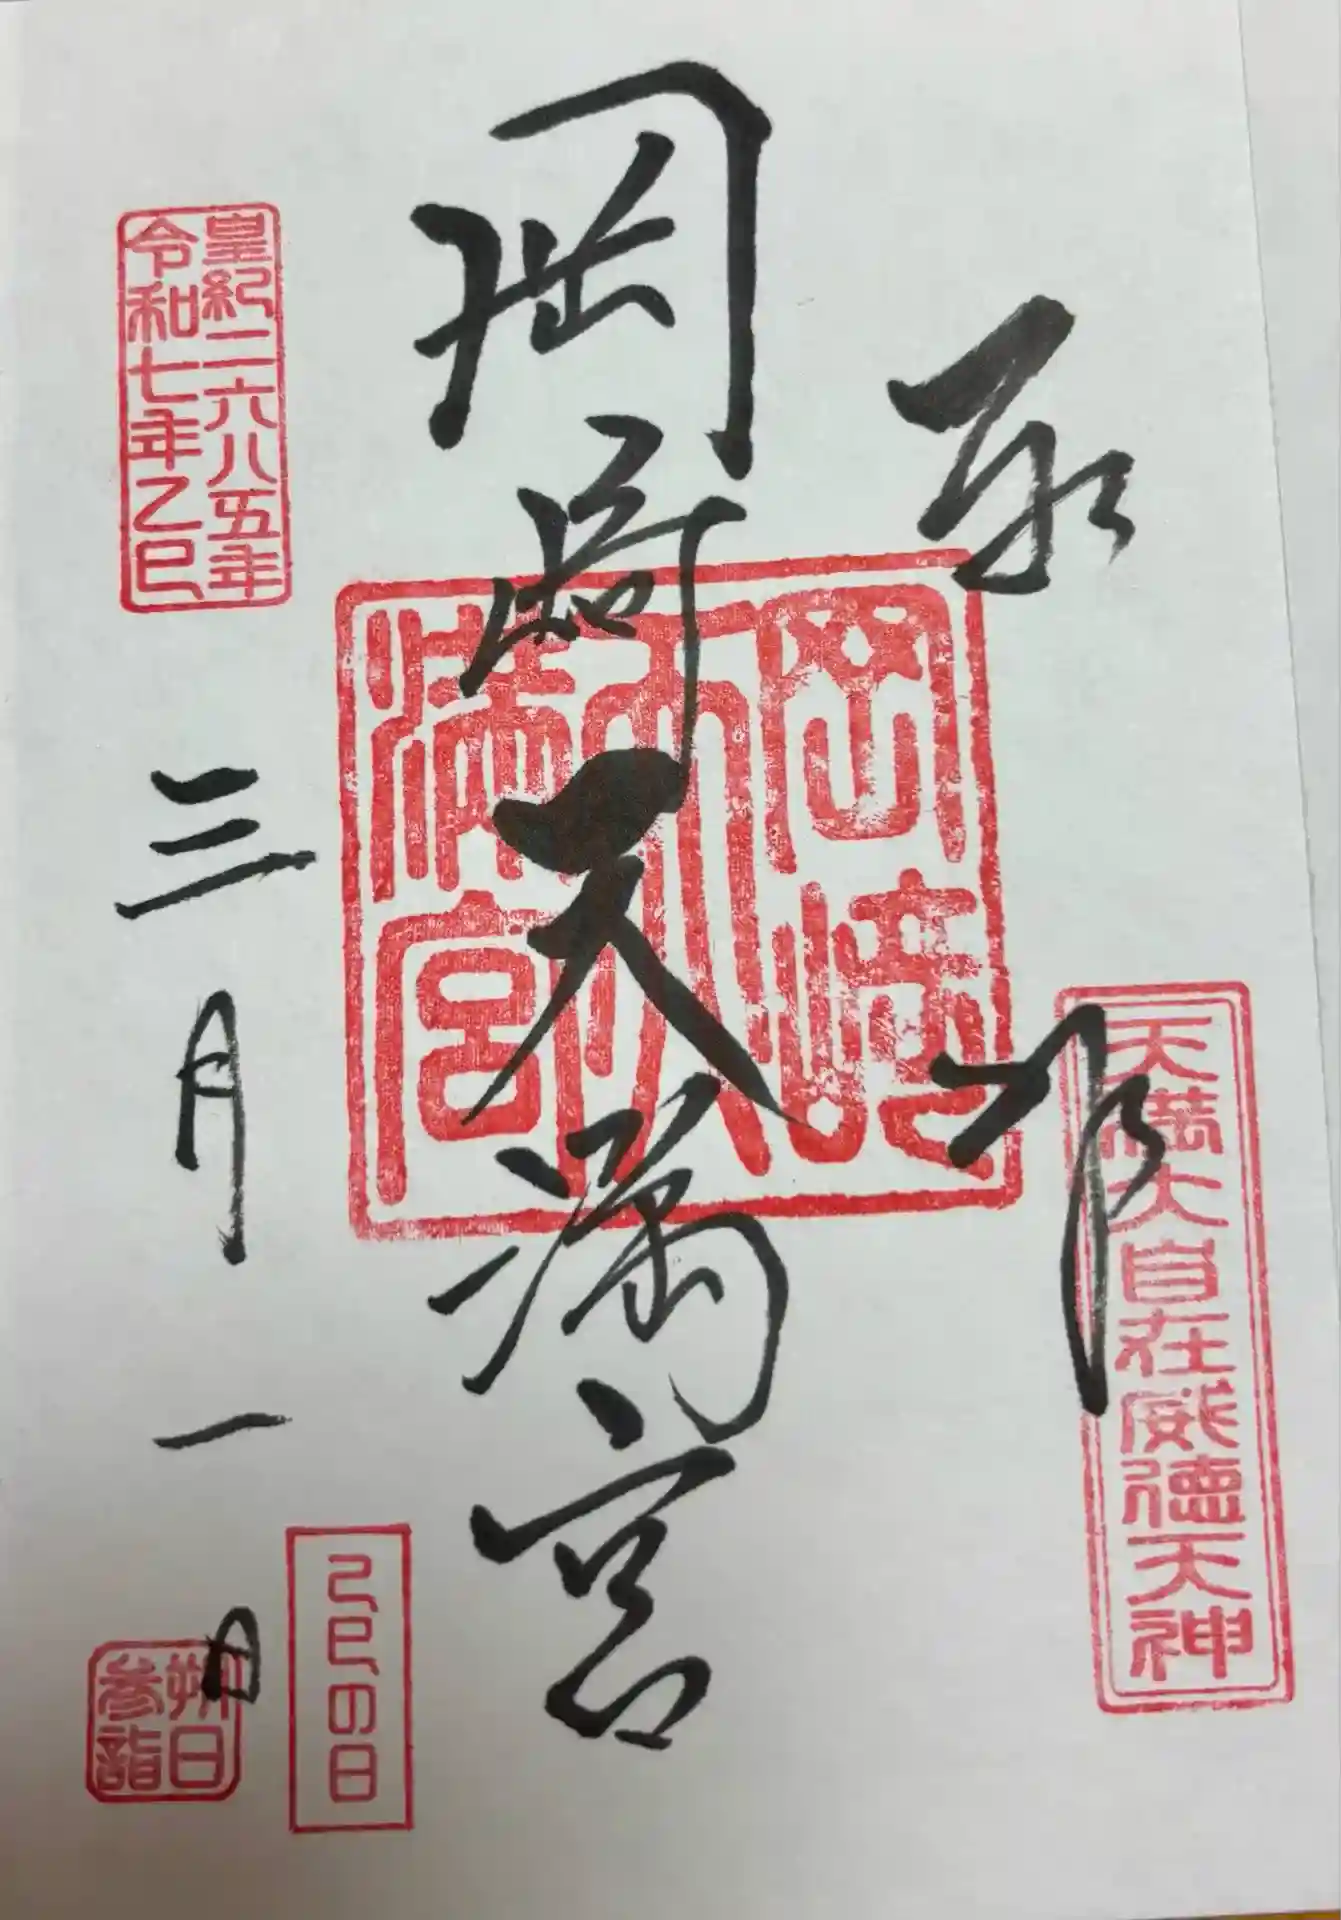 奉拝
天満大自在威徳天神
岡崎天満宮
岡崎
天
満宮
皇紀二六八五年
令和七年乙巳
三月一日
己巳の日
朔日
参詣